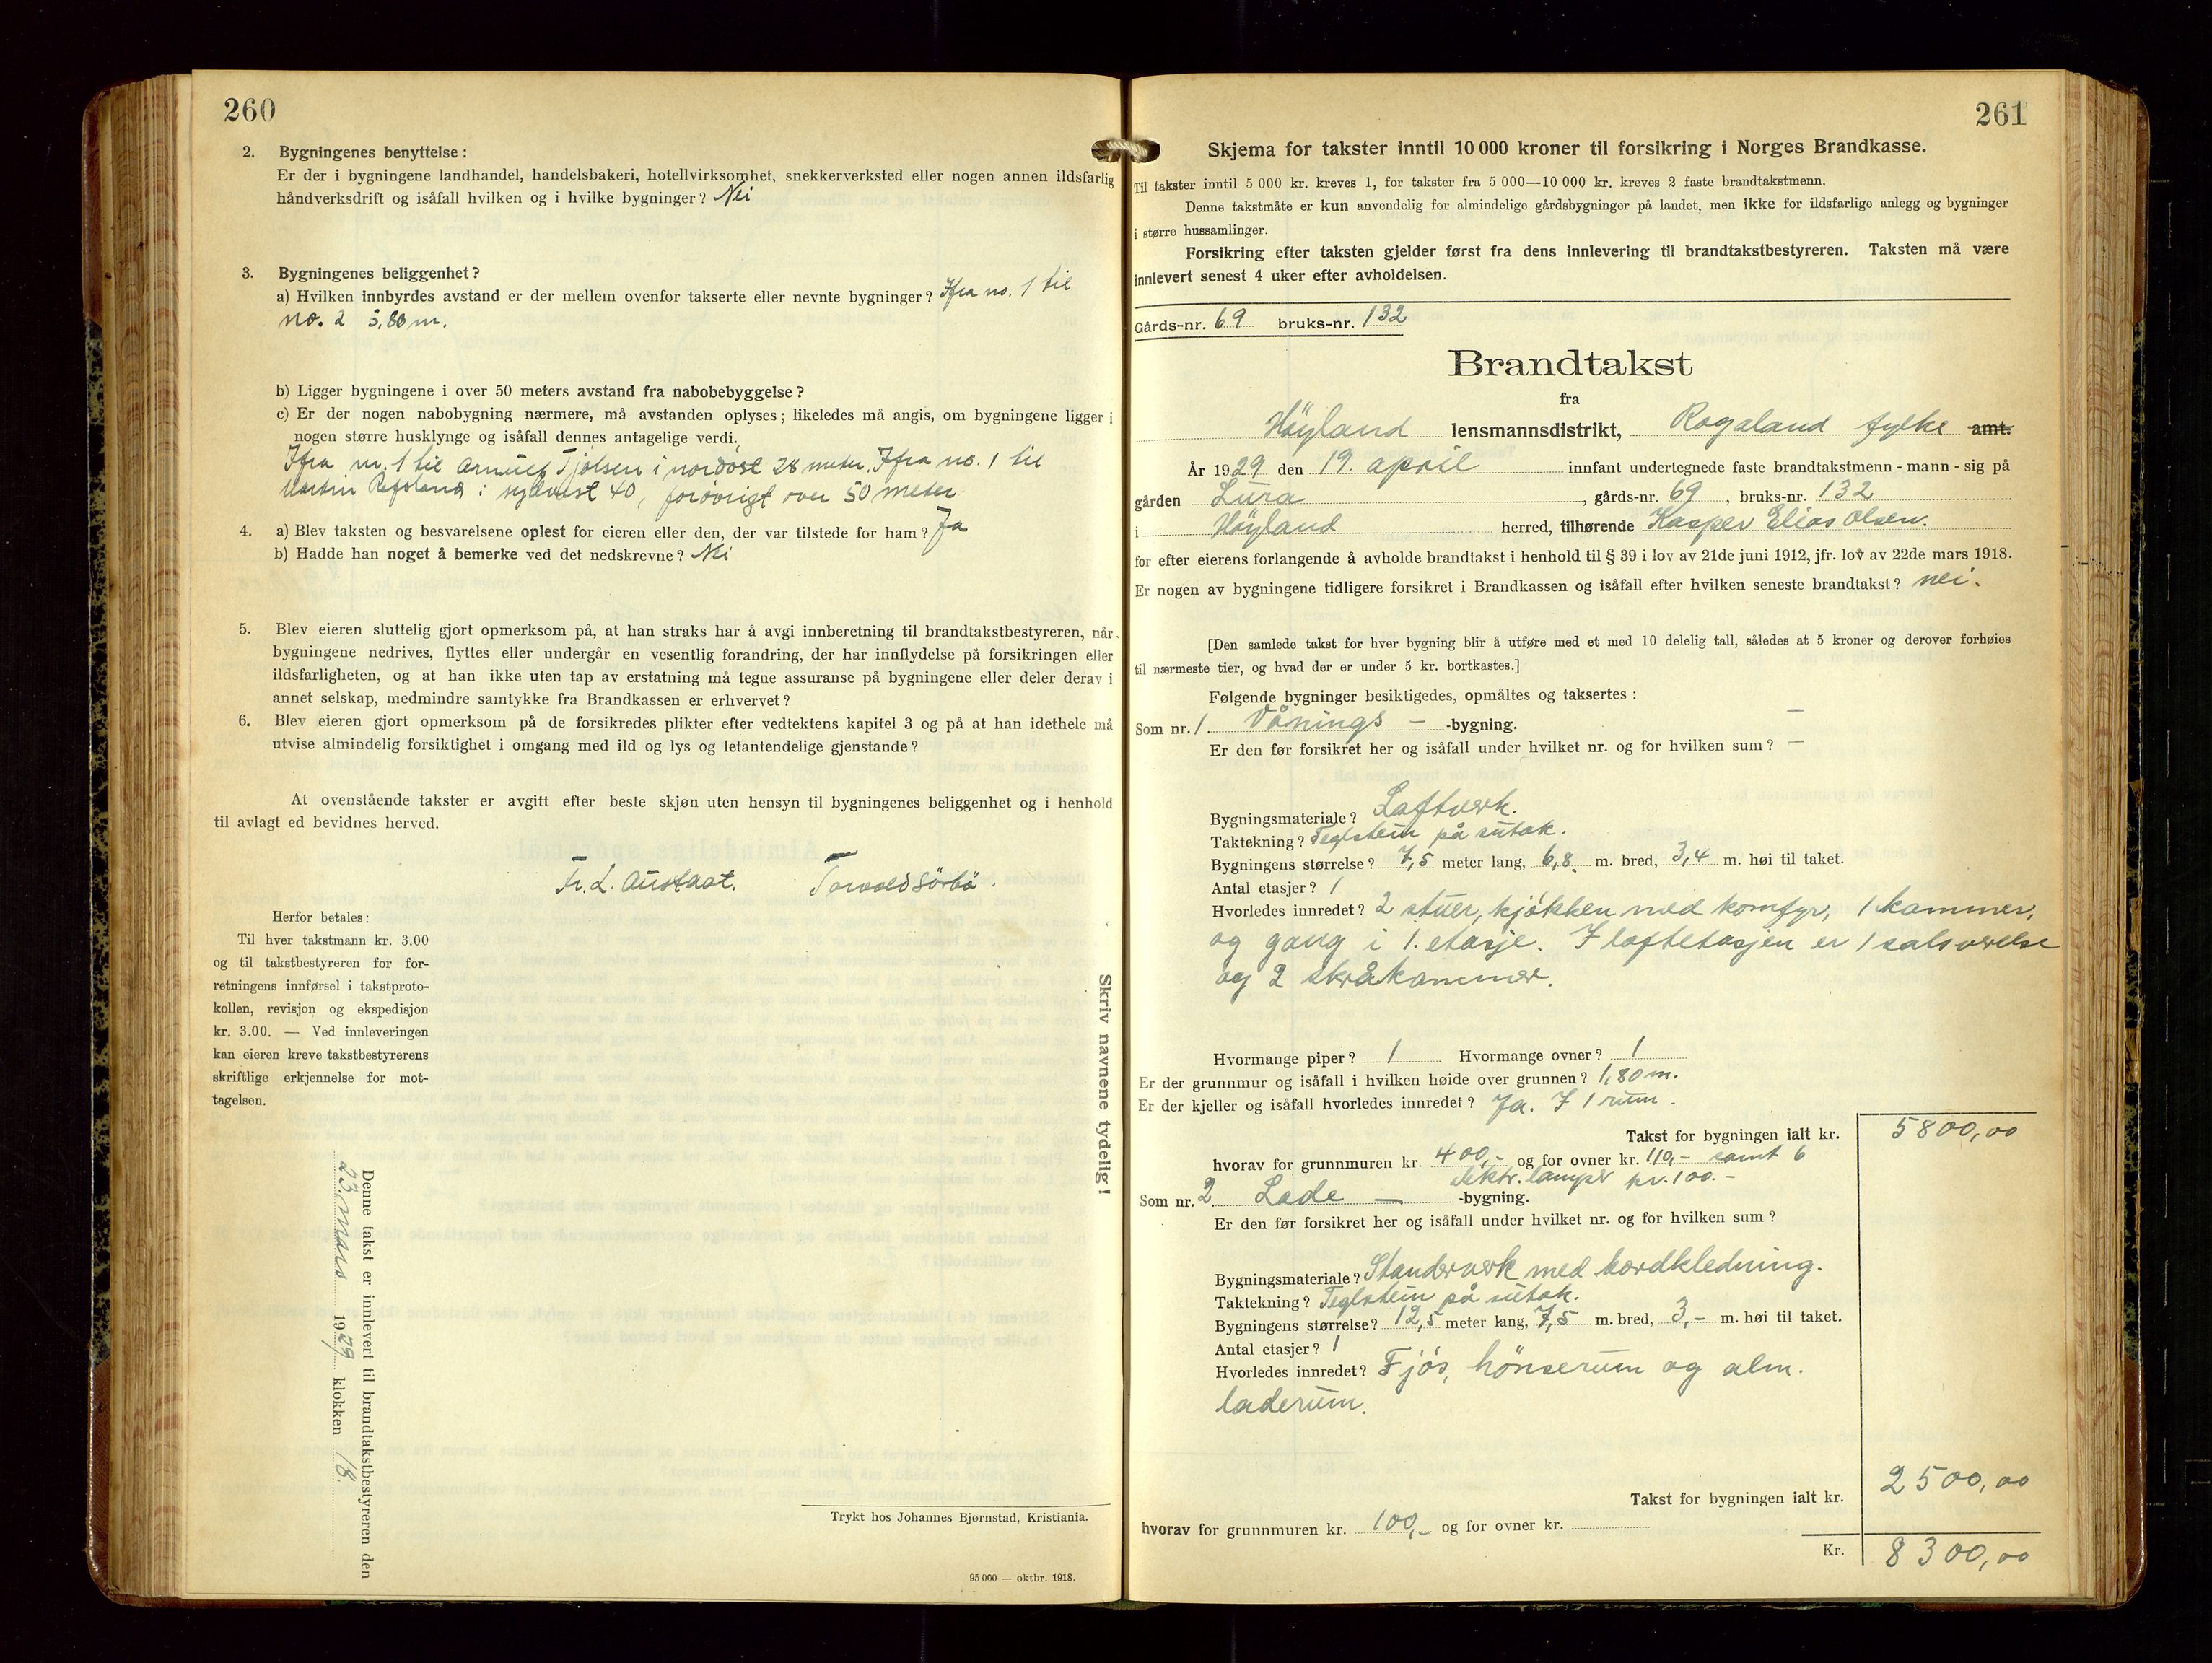 260
2. Bygningenes benyttelse:
Er der i bygningene landhandel, handelsbakeri, hotellvirksomhet, snekkerverksted eller nogen annen ildsfarlig
håndverksdrift og isåfall hvilken og i hvilke bygninger? Nei
3. Bygningenes beliggenhet?
a) Hvilken innbyrdes avstand er der mellem ovenfor takserte eller nevnte bygninger? Ifra no. 1 til
no. 2 5,80 m.
b) Ligger bygningene i over 50 meters avstand fra nabobebyggelse?
c) Er der nogen nabobygning nærmere, må avstanden oplyses; likeledes må angis, om bygningene ligger i
nogen større husklynge og isåfall dennes antagelige verdi.
Ifra nr. 1 til Tjølsen i nordöst 28 meter. Ifra no. 1 til
Martin Refsland i sydvest 40, forøvrigt over 50 meter
4. a) Blev taksten og besvarelsene oplest for eieren eller den, der var tilstede for ham? Ja
b) Hadde han noget å bemerke ved det nedskrevne? Nei
5. Blev eieren sluttelig gjort opmerksom på, at han straks har å avgi innberetning til brandtakstbestyreren, når
bygningene nedrives, flyttes eller undergår en vesentlig forandring, der har innflydelse på forsikringen eller
ildsfarligheten, og at han ikke uten tap av erstatning må tegne assuranse på bygningene eller deler derav i
annet selskap, medmindre samtykke fra Brandkassen er erhvervet?
6. Blev eieren gjort opmerksom på de forsikredes plikter efter vedtektens kapitel 3 og på at han idethele må
utvise almindelig forsiktighet i omgang med ild og lys og letantendelige gjenstande?
At ovenstående takster er avgitt efter beste skjøn uten hensyn til bygningenes beliggenhet og i henhold
til avlagt ed bevidnes herved.
Fr. L. Austaat. Torvald Sörbö.
Herfor betales:
Til hver takstmann kr. 3.00
og til takstbestyreren for for-
retningens innførsel i takstproto-
kollen, revisjon og ekspedisjon
kr. 3.00. — Ved innleveringen
kan eieren kreve takstbestyrerens
skriftlige erkjennelse for mot-
tagelsen.
Skriv navnene tydelig!
Denne takst er innlevert til brandtakstbestyreren den
23. mars 1929 klokken 18.
Trykt hos Johannes Bjørnstad, Kristiania.
95 000 — oktbr. 1918.
261
Skjema for takster inntil 10 000 kroner til forsikring i Norges Brandkasse.
Til takster inntil 5 000 kr. kreves 1, for takster fra 5 000—10 000 kr. kreves 2 faste brandtakstmenn.
Denne takstmåte er kun anvendelig for almindelige gårdsbygninger på landet, men ikke for ildsfarlige anlegg og bygninger
i større hussamlinger.
Forsikring efter taksten gjelder først fra dens innlevering til brandtakstbestyreren. Taksten må være
innlevert senest 4 uker efter avholdelsen.
Gårds-nr. 69 bruks-nr. 132
Brandtakst
fra
Höyland lensmannsdistrikt, Rogaland fylke amt.
År 1929 den 19. april innfant undertegnede faste brandtakstmenn - mann - sig på
gården Lura, gårds-nr. 69, bruks-nr. 132
i Höyland herred, tilhørende Kasper Elias Olsen.
for efter eierens forlangende å avholde brandtakst i henhold til § 39 i lov av 21de juni 1912, jfr. lov av 22de mars 1918.
Er nogen av bygningene tidligere forsikret i Brandkassen og isåfall efter hvilken seneste brandtakst? nei.
[Den samlede takst for hver bygning blir å utføre med et med 10 delelig tall, således at 5 kroner og derover forhøies
til nærmeste tier, og hvad der er under 5 kr. bortkastes.]
Følgende bygninger besiktigedes, opmåltes og taksertes:
Som nr. 1. Vånings — -bygning. —
Er den før forsikret her og isåfall under hvilket nr. og for hvilken sum? —
Bygningsmateriale? Laftverk.
Taktekning? Teglstein på sutak.
Bygningens størrelse? 7,5 meter lang, 6,8 m. bred, 3,4 m. høi til taket.
Antal etasjer? 1
Hvorledes innredet? 2 stuer, kjökken med komfyr, 1 kammer,
og gang i 1. etasje. I loftetasjen er 1 salsverelse
og 2 skråkammer.
Hvormange piper? 1 Hvormange ovner? 1
Er der grunnmur og isåfall i hvilken høide over grunnen? 1,80 m.
Er der kjeller og isåfall hvorledes innredet? Ja. I 1 rum.
Takst for bygningen ialt kr. 5800,00
hvorav for grunnmuren kr. 400,- og for ovner kr. 110,- samt 6
elektr. lamper kr. 100.-
Som nr. 2 Lade — -bygning.
Er den før forsikret her og isåfall under hvilket nr. og for hvilken sum?
Bygningsmateriale? Standerverk med bordkledning.
Taktekning? Teglstein på sutak.
Bygningens størrelse? 12,5 meter lang, 7,5 m. bred, 3,- m. høi til taket.
Antal etasjer? 1
Hvorledes innredet? Fjös, hönserum og alm.
laderum.
Takst for bygningen ialt kr. 2500,00
hvorav for grunnmuren kr. 100,- og for ovner kr.
Kr. 8300,00